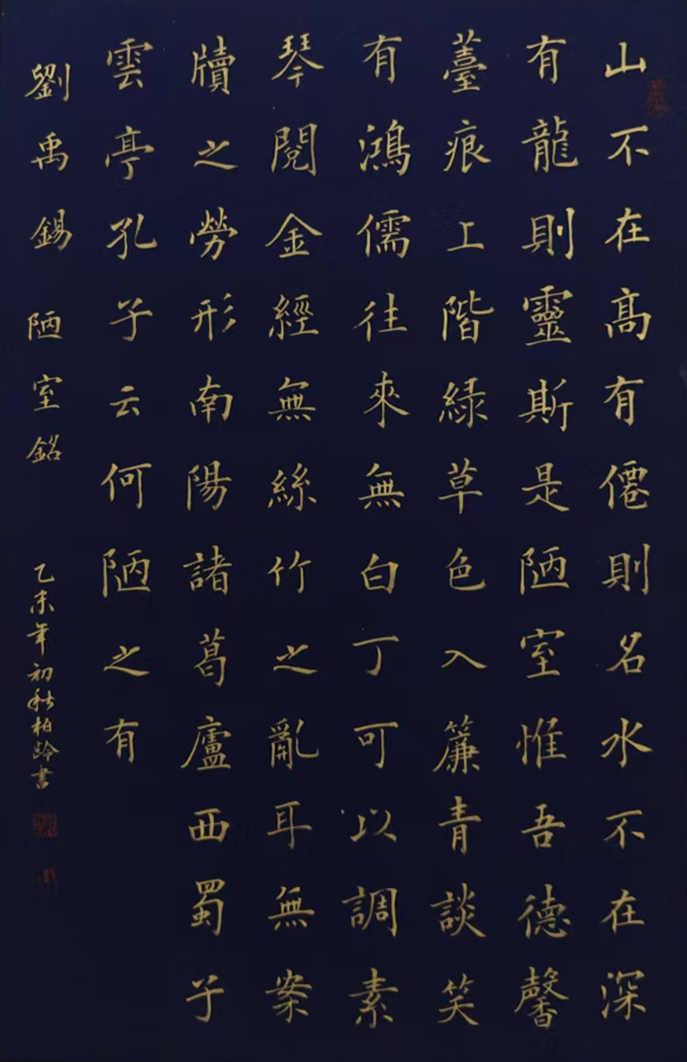 山不在高有僊則名水不在深
有龍則靈斯是陋室惟吾德馨
薹痕上階緑草色入簾青談笑
有鴻儒往來無白丁可以調素
琴閱金經無絲竹之亂耳無案
牘之勞形南陽諸葛廬西蜀子
雲亭孔子云何陋之有
劉禹錫 陋室銘
乙未年初秋柏龄書